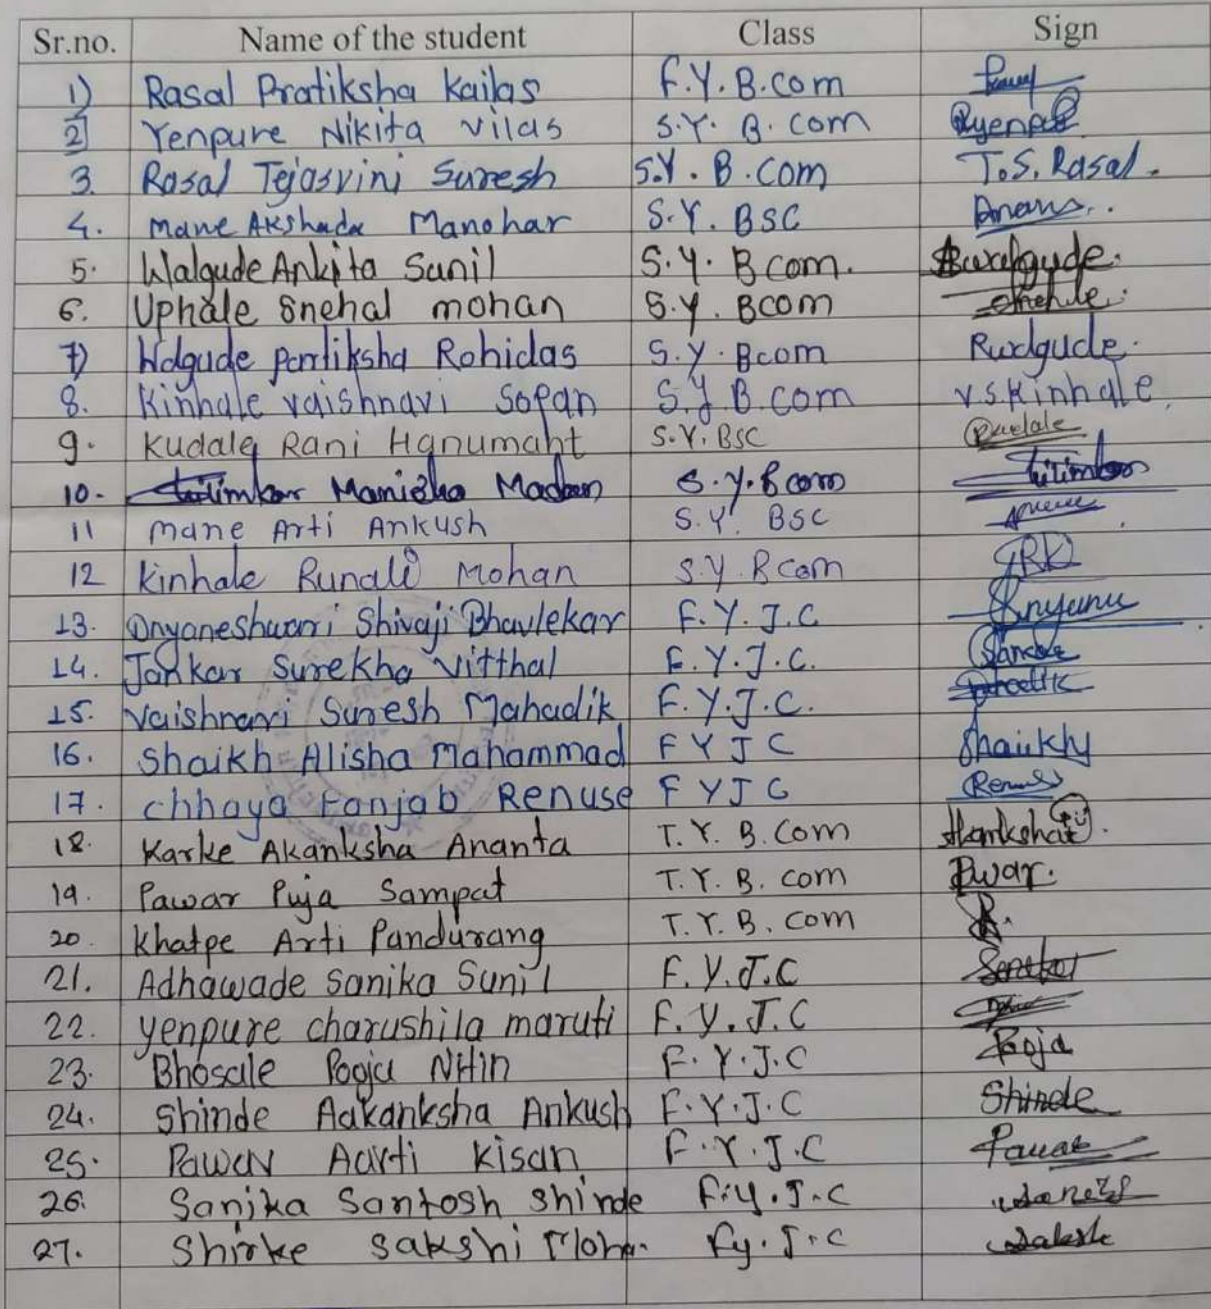 Sr.no. Name of the student Class Sign
1) Rasal Pratiksha Kailas F.Y.B.com
2) Yenpure Nikita Vilas S.Y. B. com
3. Rasal Tejasvini Suresh S.Y. B.com T.S. Rasal.
4. Mane Akshada Manohar S.Y. BSC
5. Walgude Ankita Sunil S.Y. Bcom.
6. Uphale Snehal mohan S.Y. Bcom
7) Walgude Rohidas S.Y. Bcom
8. Kinhale vaishnavi Sopan S.Y B.com V.S.Kinhale
9. Kudale Rani Hanumant S.Y. BSC
10. Manisha Madan S.Y.Bcom
11 Mane Arti Ankush S.Y. BSC
12 Kinhale Runali Mohan S.Y. Bcom
13. Dnyaneshwari Shivaji Bhavlekar F.Y.J.C
14. Jankar Surekha Vitthal F.Y.J.C.
15. Vaishnavi Suresh Mahadik F.Y.J.C.
16. Shaikh Alisha Mahammad F Y J C
17. chhaya Panjab Renuse F Y J C
18. Karke Akanksha Ananta T.Y. B.Com
19. Pawar Puja Sampat T.Y. B. com
20. Khatpe Arti Pandurang T.Y. B. com
21. Adhawade Sanika Sunil F.Y.J.C
22. yenpure charushila maruti F.Y.J.C
23. Bhosale Pooja Nitin F.Y.J.C Pooja
24. Shinde Aakanksha Ankush F.Y.J.C Shinde
25. Aarti Kisan F.Y.J.C
26. Sanika Santosh Shinde F.y.J.C
27. Shirke Sakshi Fy.J.C